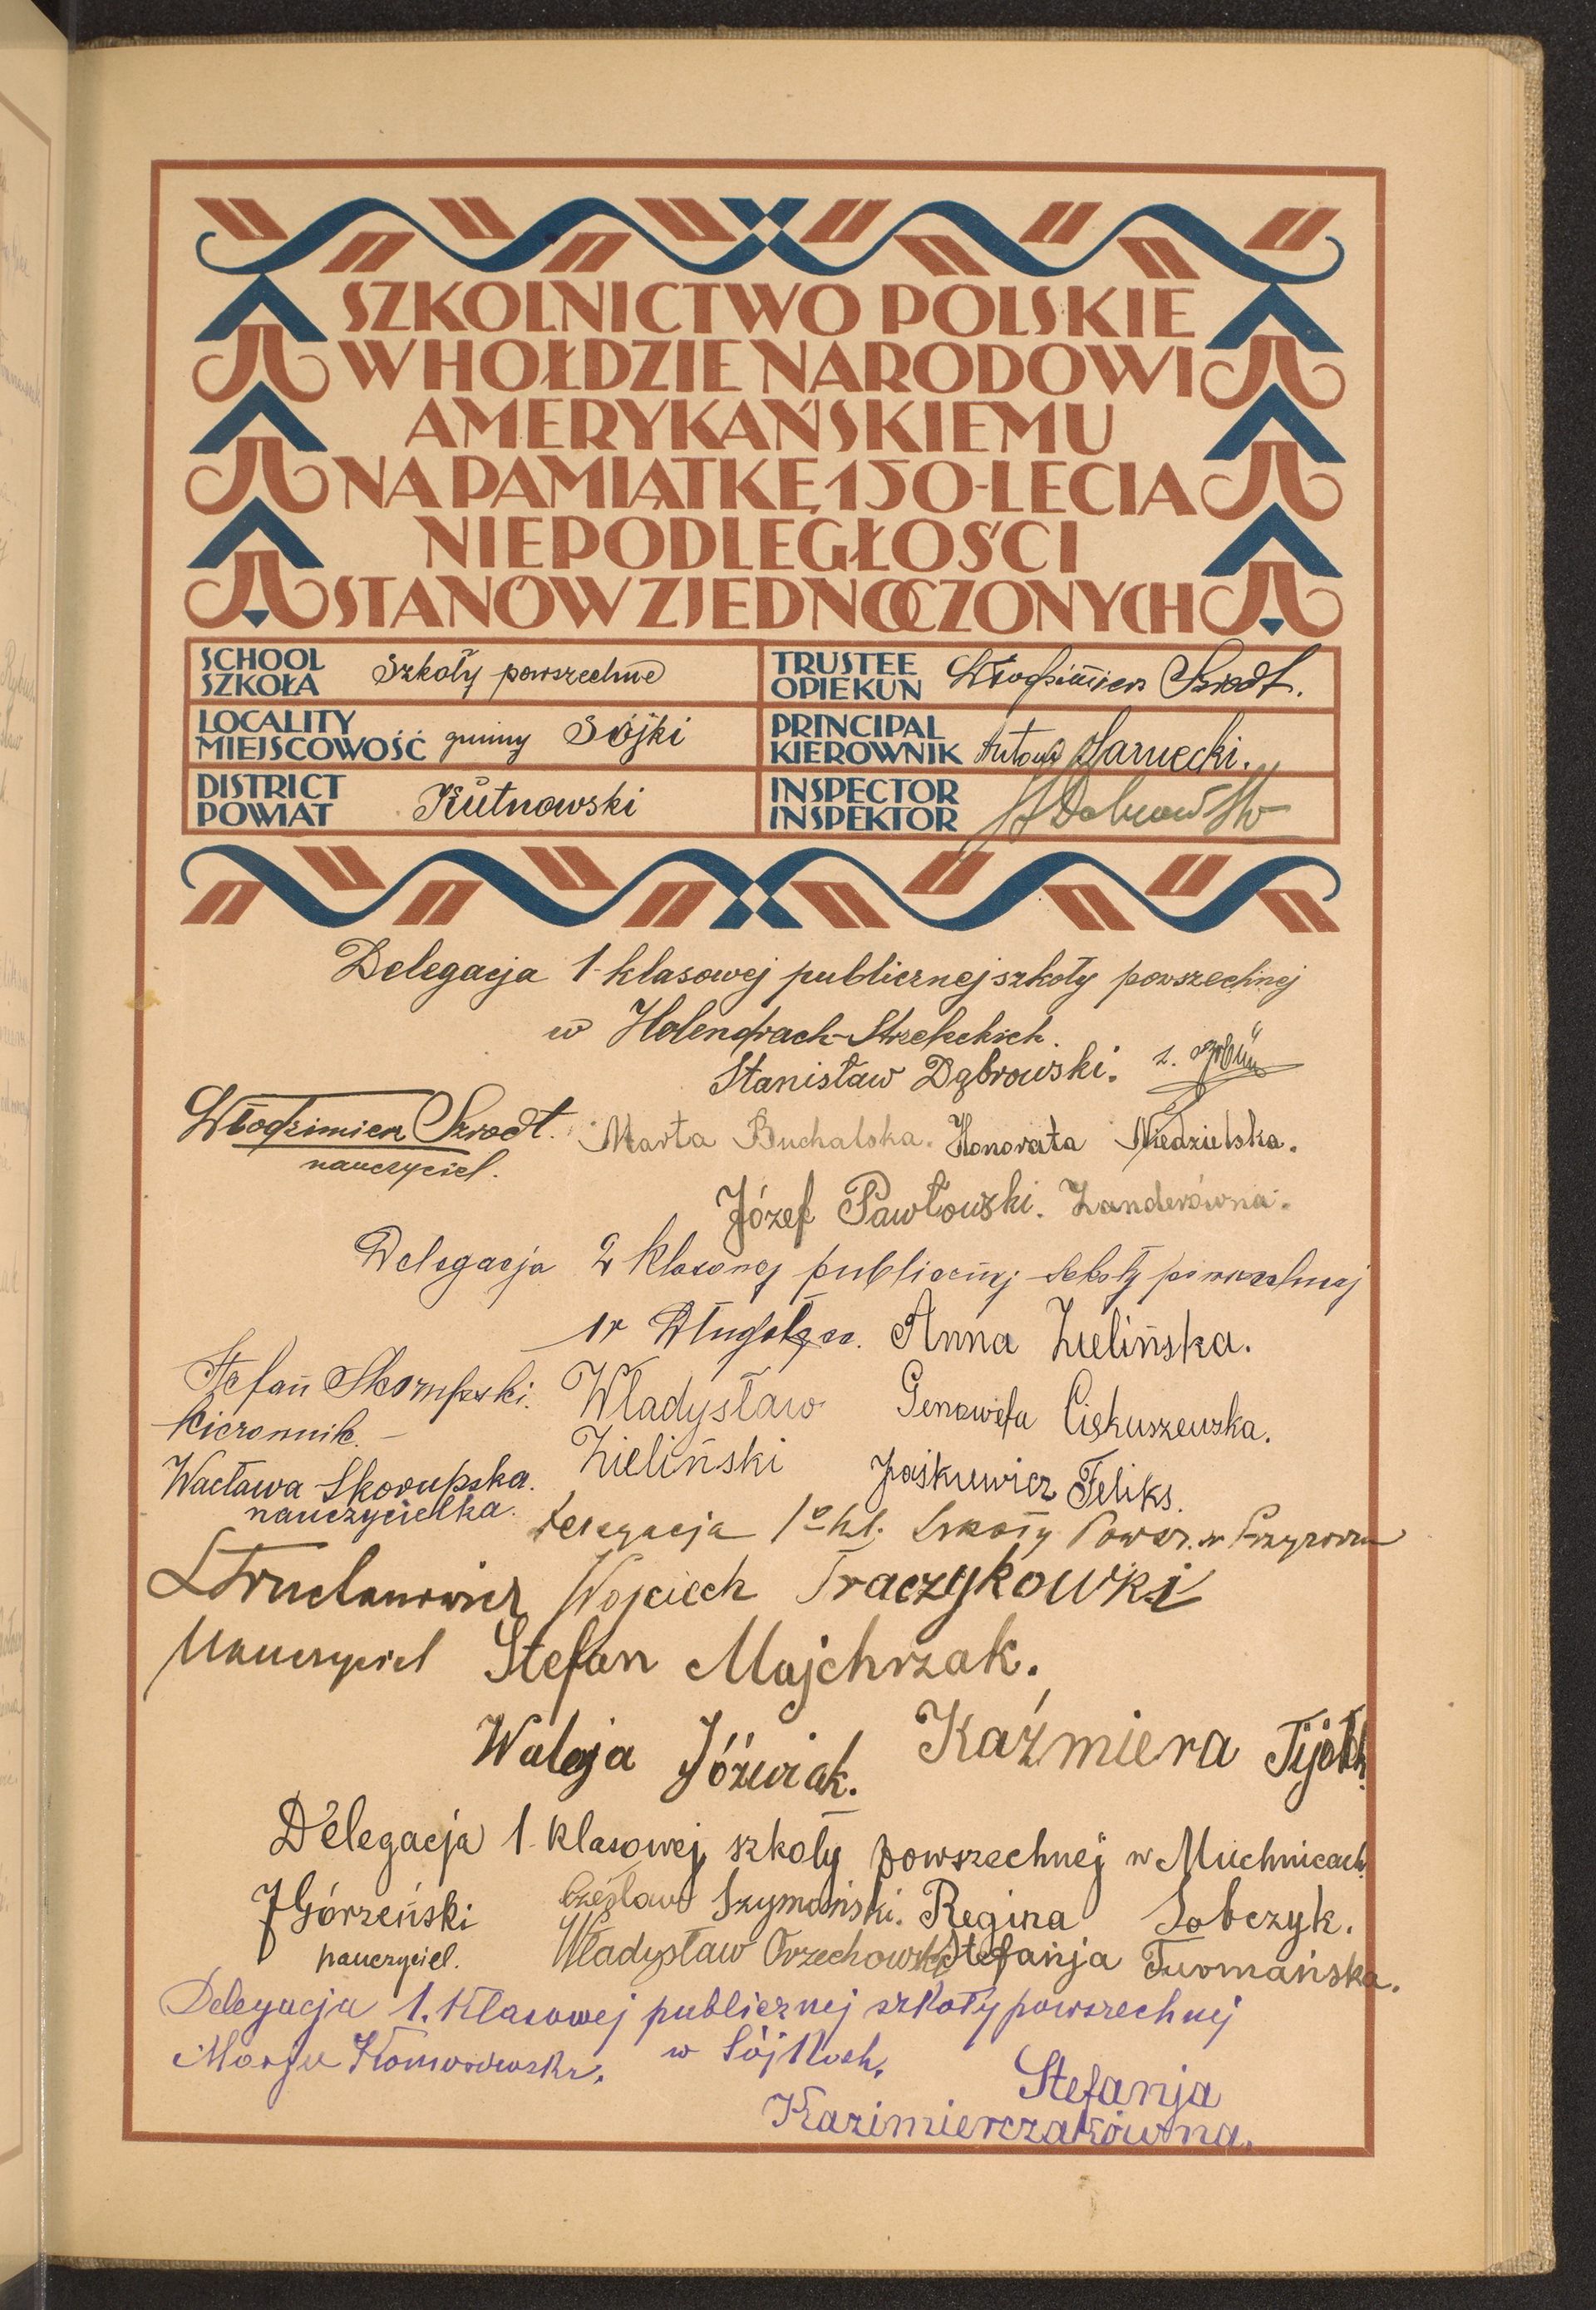 SZKOLNICTWO POLSKIE
W HOŁDZIE NARODOWI
AMERYKAŃSKIEMU
NA PAMIĄTKĘ 150-LECIA
NIEPODLEGŁOŚCI
STANÓW ZJEDNOCZONYCH
SCHOOL
SZKOŁA
Szkoły powszechne
TRUSTEE
OPIEKUN
Włodzimierz Szrodt.
LOCALITY
MIEJSCOWOŚĆ
gminy Sójki
PRINCIPAL
KIEROWNIK
Antoni Żarnecki.
DISTRICT
POWIAT
Kutnowski
INSPECTOR
INSPEKTOR
Delegacja 1-klasowej publicznej szkoły powszechnej
w Holendrach-Strzeleckich.
Stanisław Dąbrowski.
Włodzimierz Szrodt. Marta Buchalska. Honorata Niedzielska.
nauczyciel.
Józef Pawłowski. Zanderówna.
Delegacja 2 klasowej publicznej szkoły powszechnej
w Długołęce. Anna Zielińska.
Stefan Skorupski. Władysław Genowefa Ciękuszewska.
kierownik.
Zieliński Jaśkiewicz Feliks.
Wacława Skorupska.
nauczycielka.
Delegacja 1º kl. Szkoły Powsz. w
Wojciech Traczykowski
nauczyciel Stefan Majchrzak.
Walerja Jóźwiak. Kaźmiera
Delegacja 1-klasowej szkoły powszechnej w Muchnicach
J Górzeński Czesław Szymański. Regina Sobczyk.
nauczyciel. Władysław Orzechowski Stefanja Furmańska.
Delegacja 1. Klasowej publicznej szkoły powszechnej
Marja Komorowska. w Sójkach.
Stefanja
Kazimierczakówna.